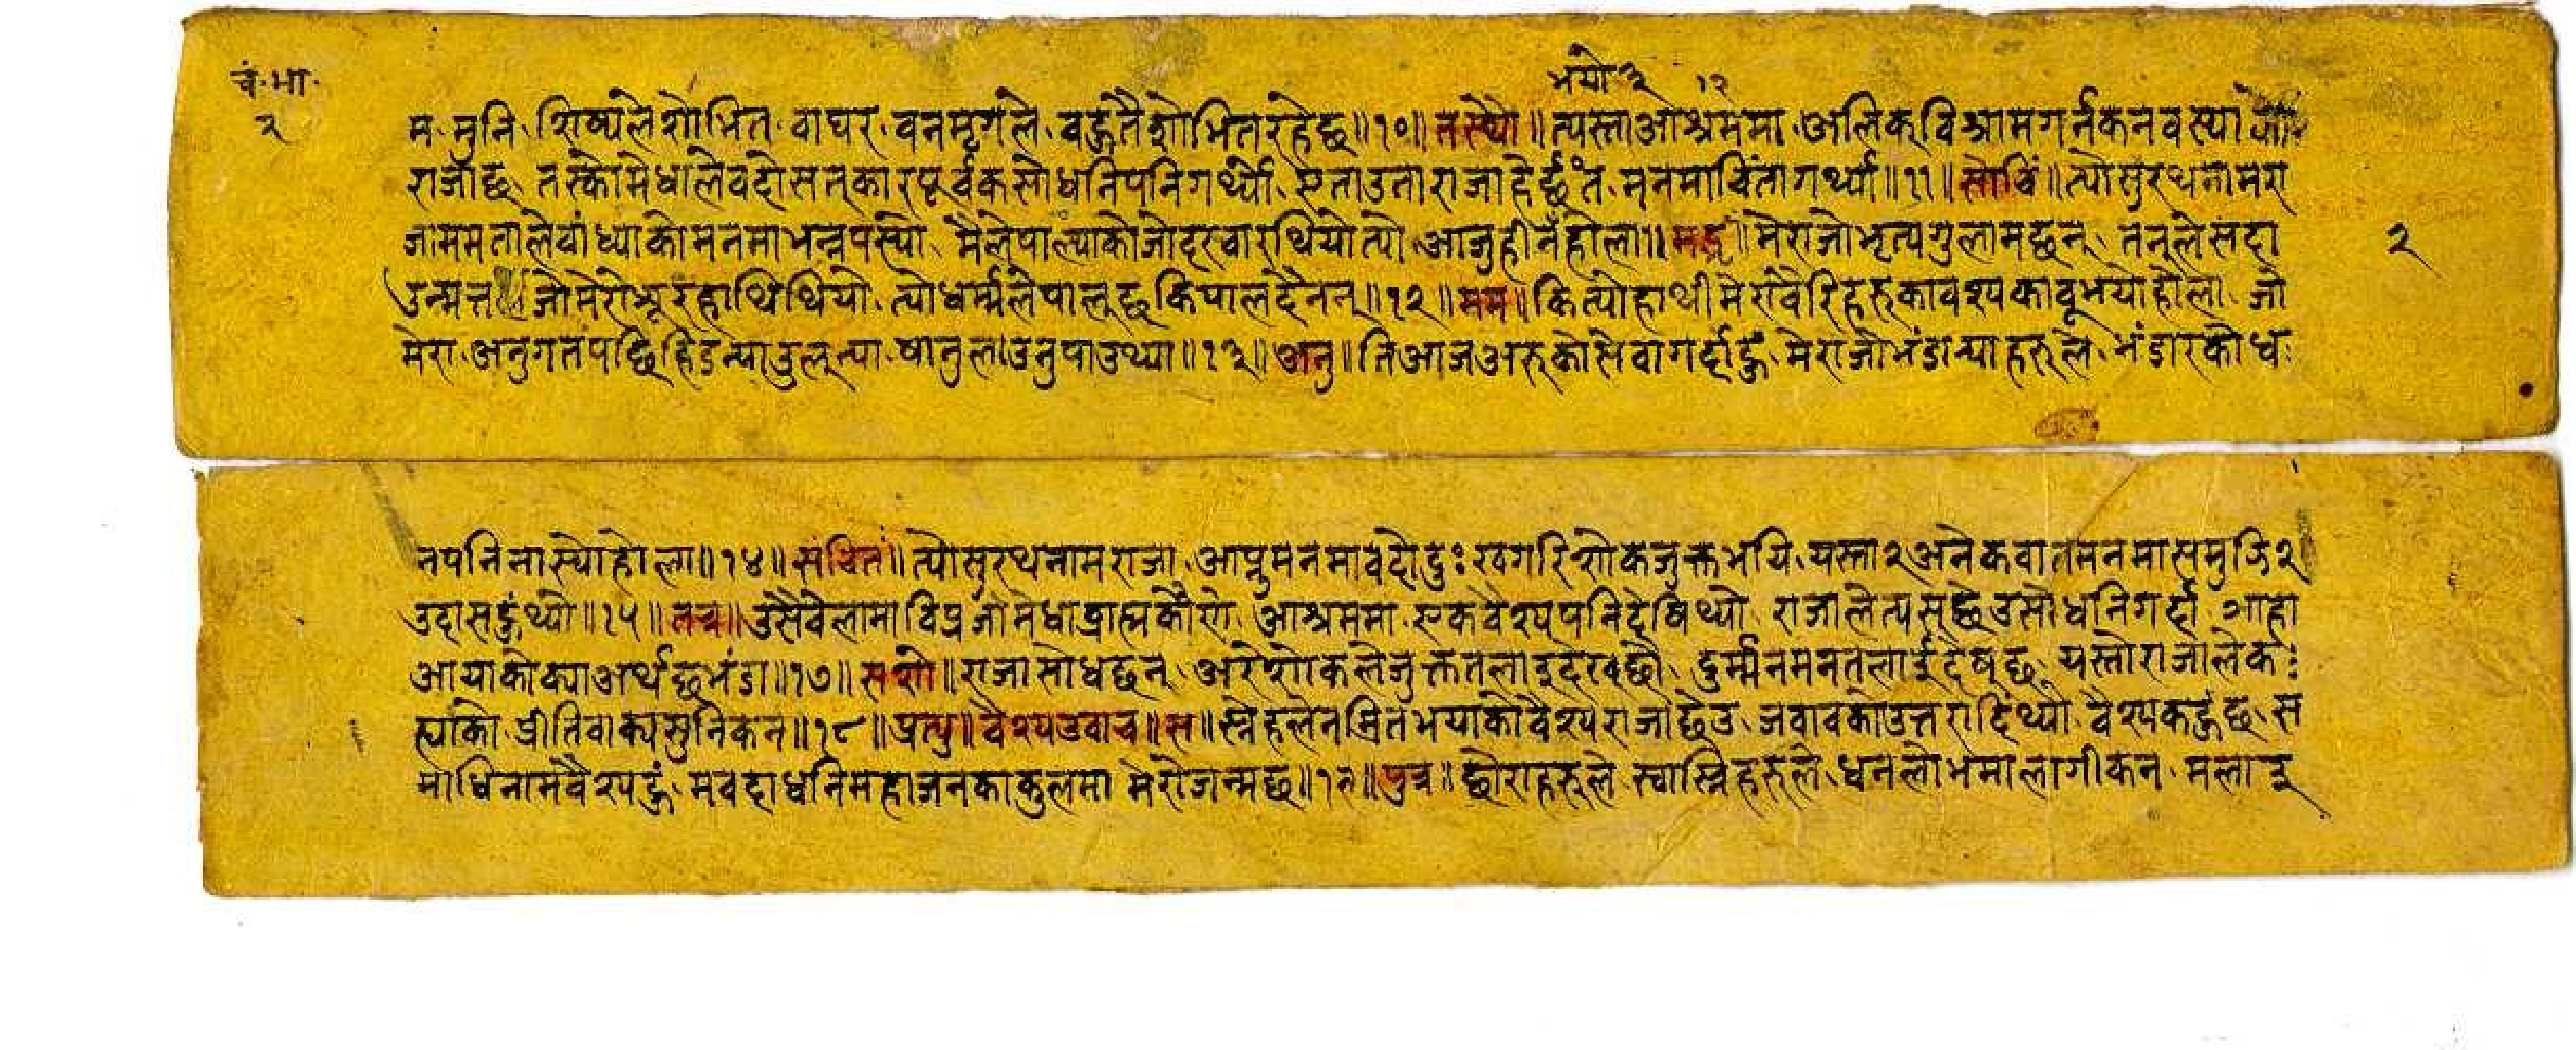 चं.भा.
भयो ३ १२
२
म मुनि शिष्यले शोभित वाघर वनमृगले वहुतै शोभित रहेछ॥१०॥तस्थौ॥त्यस्ता आश्रममा अलिक विश्राम गर्नकन वस्या
राजा छ तस्को मेधाले वहो सत्कारपूर्वक सोधनि पनि गर्थ्यो एता उता राजा हेर्छंत मनमा चिंता गर्थ्या॥११॥सोचिं॥त्यो सुरथ नाम रा
जा ममताले वांध्याको मनमा भन्न पस्यो मैले पाल्याको जो दरवार थियो त्यो आज हीन होला॥मद्भृ॥मेरा जो भृत्य गुलाम छन् तनले सदा
उन्मत्त जो मेरो शूर हाथि थियो त्यो धर्म्मले पाल्छ कि पालदैनन्॥१२॥मम॥कि त्यो हाथी मेरो वैरिहरुका वश्यकावू भयो होला जो
मेरा अनुगत पछि हिडन्या डुलन्या षानुला उनु पाउथ्या॥१३॥अनु॥ति आज अरुको सेवा गर्दा हुं मेरा जो भंडान्याहरुले भंडारको ध
२
न पनि नास्यो होला॥१४॥संचितं॥त्यो सुरथ नाम राजा आफु मनमा वहो दुःख गरि शोकेजुक्त भयि यस्ता २ अनेक वात मनमा समुझि २
उदास हुंथ्यो॥१५॥तत्र॥उसै वेलामा विप्र जो मेधा व्राह्मकौसो आश्रममा एक वैश्य पनि देषिथ्यो राजाले त्यस्छेउ सोधनि गर्दा ञाहा
आयाको क्या अर्थ छ भंडा॥१७॥सशो॥राजा सोधछन् अरे शोकले जुक्त तलाइ दखछौ दुर्म्मन मन तलाई देषछु यस्तो राजाले क
ह्याको प्रीति वाक्य सुनिकन॥१८॥प्रत्यु॥वैश्य उवाच॥स॥स्नेहले नम्रित भयाको वैश्य राजाछेउ जवावको उत्तरा दिंथ्यो वैश्य कहंछ स
माधि नाम वैश्य हुं म वहा धनि महाजनका कुलमा मेरो जन्म छ॥१९॥पुत्र॥छोराहरूले स्वास्निहरुले धन लोभमा लागीकन मलाइ